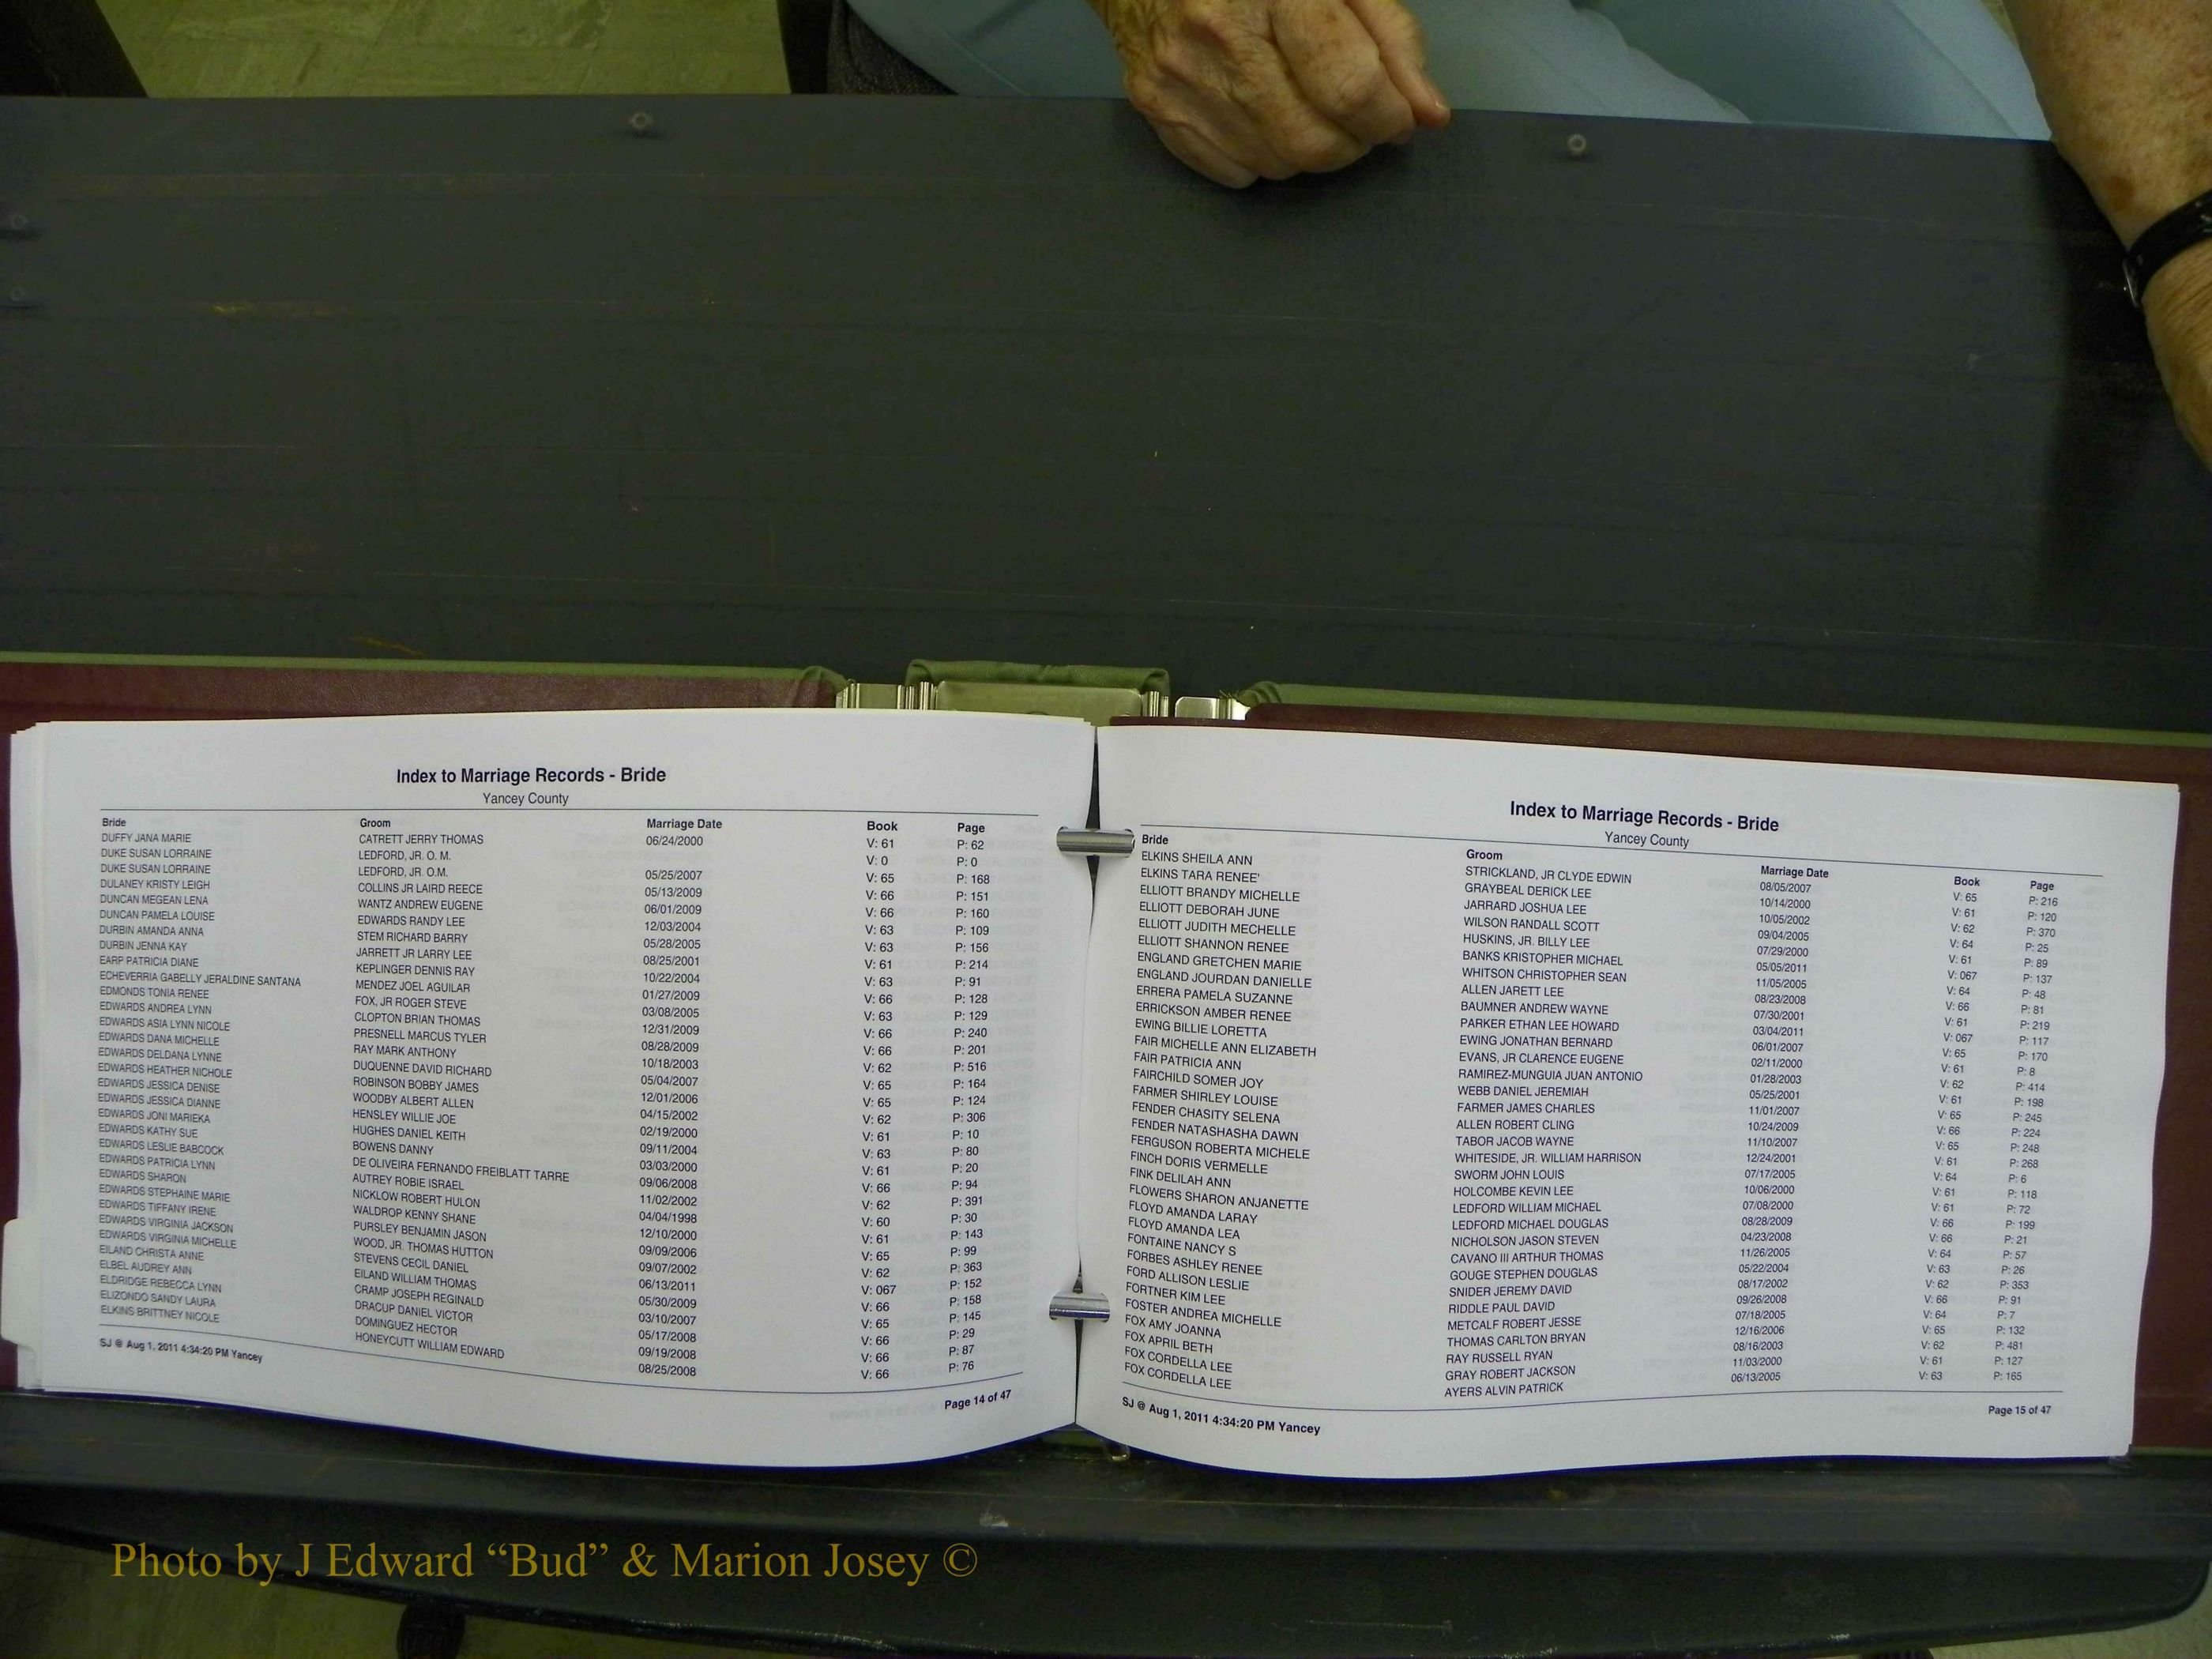 Index to Marriage Records - Bride
Yancey County
Bride Groom Marriage Date Book Page
DUFFY JANA MARIE CATRETT JERRY THOMAS 06/24/2000 V: 61 P: 62
DUKE SUSAN LORRAINE LEDFORD, JR. O. M. V: 0 P: 0
DUKE SUSAN LORRAINE LEDFORD, JR. O.M. 05/25/2007 V: 65 P: 168
DULANEY KRISTY LEIGH COLLINS JR LAIRD REECE 05/13/2009 V: 66 P: 151
DUNCAN MEGEAN LENA WANTZ ANDREW EUGENE 06/01/2009 V: 66 P: 160
DUNCAN PAMELA LOUISE EDWARDS RANDY LEE 12/03/2004 V: 63 P: 109
DURBIN AMANDA ANNA STEM RICHARD BARRY 05/28/2005 V: 63 P: 156
DURBIN JENNA KAY JARRETT JR LARRY LEE 08/25/2001 V: 61 P: 214
EARP PATRICIA DIANE KEPLINGER DENNIS RAY 10/22/2004 V: 63 P: 91
ECHEVERRIA GABELLY JERALDINE SANTANA MENDEZ JOEL AGUILAR 01/27/2009 V: 66 P: 128
EDMONDS TONIA RENEE FOX, JR ROGER STEVE 03/08/2005 V: 63 P: 129
EDWARDS ANDREA LYNN CLOPTON BRIAN THOMAS 12/31/2009 V: 66 P: 240
EDWARDS ASIA LYNN NICOLE PRESNELL MARCUS TYLER 08/28/2009 V: 66 P: 201
EDWARDS DANA MICHELLE RAY MARK ANTHONY 10/18/2003 V: 62 P: 516
EDWARDS DELDANA LYNNE DUQUENNE DAVID RICHARD 05/04/2007 V: 65 P: 164
EDWARDS HEATHER NICHOLE ROBINSON BOBBY JAMES 12/01/2006 V: 65 P: 124
EDWARDS JESSICA DENISE WOODBY ALBERT ALLEN 04/15/2002 V: 62 P: 306
EDWARDS JESSICA DIANNE HENSLEY WILLIE JOE 02/19/2000 V: 61 P: 10
EDWARDS JONI MARIEKA HUGHES DANIEL KEITH 09/11/2004 V: 63 P: 80
EDWARDS KATHY SUE BOWENS DANNY 03/03/2000 V: 61 P: 20
EDWARDS LESLIE BABCOCK DE OLIVEIRA FERNANDO FREIBLATT TARRE 09/06/2008 V: 66 P: 94
EDWARDS PATRICIA LYNN AUTREY ROBIE ISRAEL 11/02/2002 V: 62 P: 391
EDWARDS SHARON NICKLOW ROBERT HULON 04/04/1998 V: 60 P: 30
EDWARDS STEPHAINE MARIE WALDROP KENNY SHANE 12/10/2000 V: 61 P: 143
EDWARDS TIFFANY IRENE PURSLEY BENJAMIN JASON 09/09/2006 V: 65 P: 99
EDWARDS VIRGINIA JACKSON WOOD, JR. THOMAS HUTTON 09/07/2002 V: 62 P: 363
EDWARDS VIRGINIA MICHELLE STEVENS CECIL DANIEL 06/13/2011 V: 067 P: 152
EILAND CHRISTA ANNE EILAND WILLIAM THOMAS 05/30/2009 V: 66 P: 158
ELBEL AUDREY ANN CRAMP JOSEPH REGINALD 03/10/2007 V: 65 P: 145
ELDRIDGE REBECCA LYNN DRACUP DANIEL VICTOR 05/17/2008 V: 66 P: 29
ELIZONDO SANDY LAURA DOMINGUEZ HECTOR 09/19/2008 V: 66 P: 87
ELKINS BRITTNEY NICOLE HONEYCUTT WILLIAM EDWARD 08/25/2008 V: 66 P: 76
SJ @ Aug 1, 2011 4:34:20 PM Yancey Page 14 of 47
Index to Marriage Records - Bride
Yancey County
Bride Groom Marriage Date Book Page
ELKINS SHEILA ANN STRICKLAND, JR CLYDE EDWIN 08/05/2007 V: 65 P: 216
ELKINS TARA RENEE' GRAYBEAL DERICK LEE 10/14/2000 V: 61 P: 120
ELLIOTT BRANDY MICHELLE JARRARD JOSHUA LEE 10/05/2002 V: 62 P: 370
ELLIOTT DEBORAH JUNE WILSON RANDALL SCOTT 09/04/2005 V: 64 P: 25
ELLIOTT JUDITH MECHELLE HUSKINS, JR. BILLY LEE 07/29/2000 V: 61 P: 89
ELLIOTT SHANNON RENEE BANKS KRISTOPHER MICHAEL 05/05/2011 V: 067 P: 137
ENGLAND GRETCHEN MARIE WHITSON CHRISTOPHER SEAN 11/05/2005 V: 64 P: 48
ENGLAND JOURDAN DANIELLE ALLEN JARETT LEE 08/23/2008 V: 66 P: 81
ERRERA PAMELA SUZANNE BAUMNER ANDREW WAYNE 07/30/2001 V: 61 P: 219
ERRICKSON AMBER RENEE PARKER ETHAN LEE HOWARD 03/04/2011 V: 067 P: 117
EWING BILLIE LORETTA EWING JONATHAN BERNARD 06/01/2007 V: 65 P: 170
FAIR MICHELLE ANN ELIZABETH EVANS, JR CLARENCE EUGENE 02/11/2000 V: 61 P: 8
FAIR PATRICIA ANN RAMIREZ-MUNGUIA JUAN ANTONIO 01/28/2003 V: 62 P: 414
FAIRCHILD SOMER JOY WEBB DANIEL JEREMIAH 05/25/2001 V: 61 P: 198
FARMER SHIRLEY LOUISE FARMER JAMES CHARLES 11/01/2007 V: 65 P: 245
FENDER CHASITY SELENA ALLEN ROBERT CLING 10/24/2009 V: 66 P: 224
FENDER NATASHASHA DAWN TABOR JACOB WAYNE 11/10/2007 V: 65 P: 248
FERGUSON ROBERTA MICHELE WHITESIDE, JR. WILLIAM HARRISON 12/24/2001 V: 61 P: 268
FINCH DORIS VERMELLE SWORM JOHN LOUIS 07/17/2005 V: 64 P: 6
FINK DELILAH ANN HOLCOMBE KEVIN LEE 10/06/2000 V: 61 P: 118
FLOWERS SHARON ANJANETTE LEDFORD WILLIAM MICHAEL 07/08/2000 V: 61 P: 72
FLOYD AMANDA LARAY LEDFORD MICHAEL DOUGLAS 08/28/2009 V: 66 P: 199
FLOYD AMANDA LEA NICHOLSON JASON STEVEN 04/23/2008 V: 66 P: 21
FONTAINE NANCY S CAVANO III ARTHUR THOMAS 11/26/2005 V: 64 P: 57
FORBES ASHLEY RENEE GOUGE STEPHEN DOUGLAS 05/22/2004 V: 63 P: 26
FORD ALLISON LESLIE SNIDER JEREMY DAVID 08/17/2002 V: 62 P: 353
FORTNER KIM LEE RIDDLE PAUL DAVID 09/26/2008 V: 66 P: 91
FOSTER ANDREA MICHELLE METCALF ROBERT JESSE 07/18/2005 V: 64 P: 7
FOX AMY JOANNA THOMAS CARLTON BRYAN 12/16/2006 V: 65 P: 132
FOX APRIL BETH RAY RUSSELL RYAN 08/16/2003 V: 62 P: 481
FOX CORDELLA LEE GRAY ROBERT JACKSON 11/03/2000 V: 61 P: 127
FOX CORDELLA LEE AYERS ALVIN PATRICK 06/13/2005 V: 63 P: 165
SJ @ Aug 1, 2011 4:34:20 PM Yancey Page 15 of 47
Photo by J Edward “Bud” & Marion Josey ©